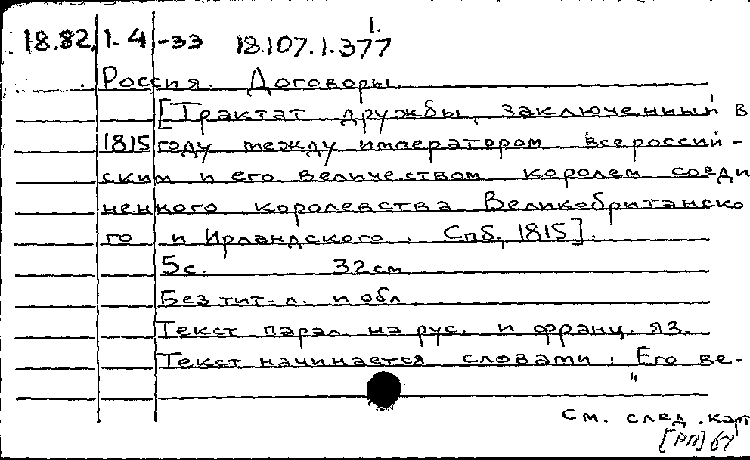 1.
18.82.1.4-33 18.107.1.377
Россия. Договоры.
[Трактат дружбы, заключенный в
1815 году между императором всероссий-
ским и его величеством королем соеди
ненного королевства Великобританско
го и Ирландского. Спб, 1815].
5 с. 32 см
Без тит. л. и обл.
Текст парал. на рус. и франц. яз.
Текст начинается словами: "Его ве-
См. след. карт
[РП] 67